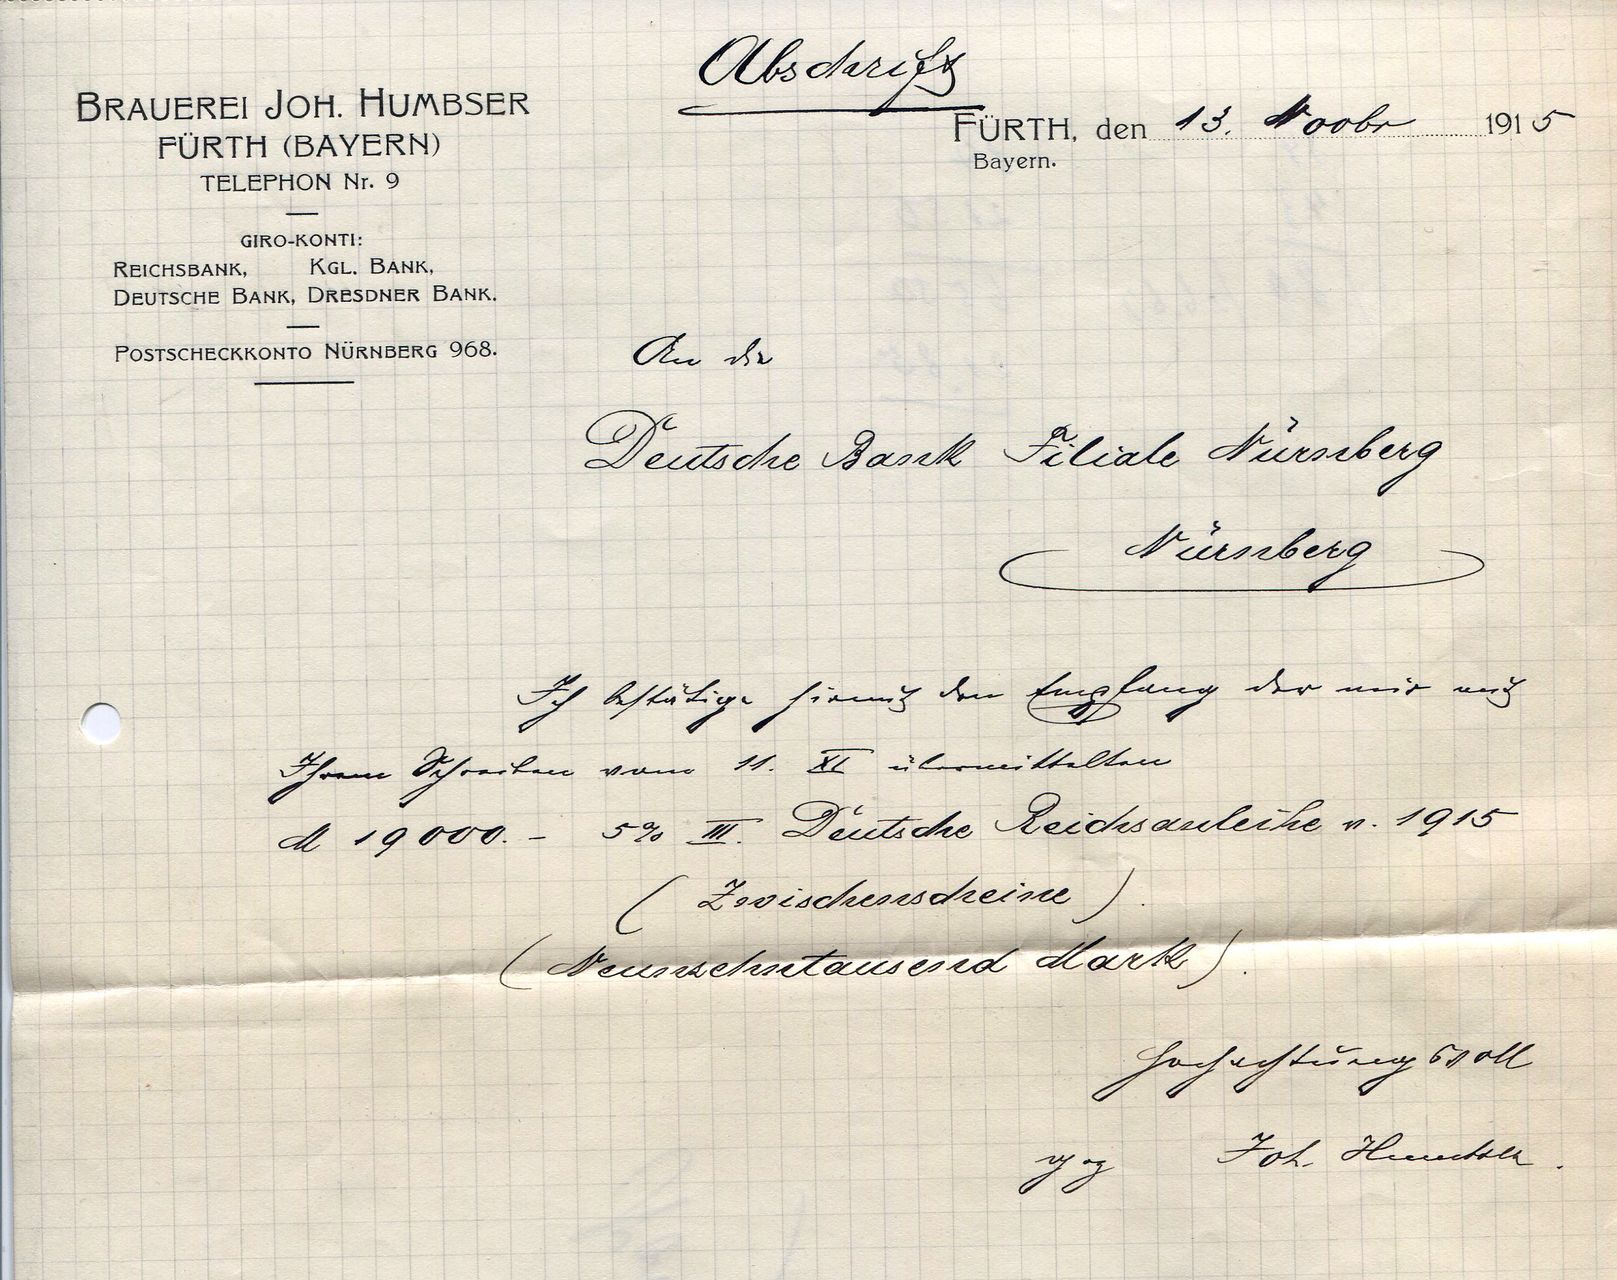 Abschrift
BRAUEREI JOH. HUMBSER
FÜRTH (BAYERN)
TELEPHON Nr. 9
GIRO-KONTI:
REICHSBANK, KGL. BANK,
DEUTSCHE BANK, DRESDNER BANK.
POSTSCHECKKONTO NÜRNBERG 968.
FÜRTH, den 13. Novbr 1915
Bayern.
An die
Deutsche Bank Filiale Nürnberg
Nürnberg
Ich bestätige hiermit den Empfang der mir mit
Ihrem Schreiben vom 11. XI übermittelten
M 19000.- 5% III. Deutsche Reichsanleihe v. 1915
(Zwischenscheine).
(Neunzehntausend Mark).
Hochachtungsvoll
gez Joh. Humbser.